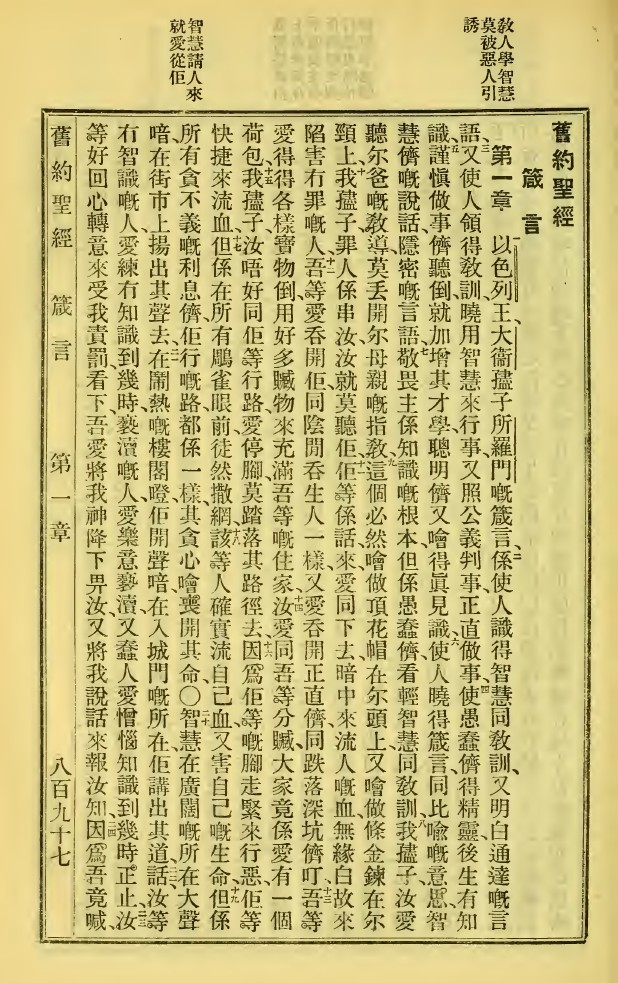 敎人學智慧
莫被惡人引
誘
智慧請人來
就愛從佢
舊約聖經
箴言
第一章 以色列王大衞𡥧子所羅門嘅箴言、二係使人識得智慧同敎訓、又明白通達嘅言
語、三又使人領得敎訓、曉用智慧來行事、又照公義判事、正直做事、四使愚蠢儕得精靈、後生有知
識謹愼做事、五儕聽倒就加增其才學、聰明儕又噲得眞見識、六使人曉得箴言同比喩嘅意思、智
慧儕嘅說話、隱密嘅言語、七敬畏主係知識嘅根本、但係愚蠢儕看輕智慧同敎訓、八我𡥧子汝愛
聽尔爸嘅敎導、莫丢開尔母親嘅指敎、九這個必然噲做頂花帽在尔頭上、又噲做條金鍊在尔
頸上、十我𡥧子罪人係串汝、汝就莫聽佢、十一佢等係話、來、愛同下去暗中來流人嘅血、無緣白故來
陷害冇罪嘅人、十二吾等愛吞開佢、同陰間吞生人一樣、又愛吞開正直儕、同跌落深坑儕叮、十三吾等
愛得得各樣寶物倒、用好多贓物來充滿吾等嘅住家、十四汝愛同吾等分贓、大家竟係愛有一個
荷包、十五我𡥧子汝唔好同佢等行路、愛停脚莫踏落其路徑去、十六因爲佢等嘅脚走緊來行惡、佢等
快捷來流血、十七但係在所有鵰雀眼前徒然撒網、十八該等人確實流自己血、又害自己嘅生命、十九但係
所有貪不義嘅利息儕、佢行嘅路都係一樣、其貪心噲喪開其命、〇二十智慧在廣闊嘅所在大聲
喑、在街市上揚出其聲去、二一在鬧熱嘅樓閣噔佢開聲喑、在入城門嘅所在佢講出其道話、二二汝等
冇智識嘅人、愛練冇知識到幾時、褻瀆嘅人愛樂意褻瀆、又蠢人愛憎惱知識到幾時、二三正止汝
等好回心轉意來受我責罰、看下、吾愛將我神降下畀汝、又將我說話來報汝知、二四因爲吾竟喊、
舊約聖經 箴言 第一章 八百九十七